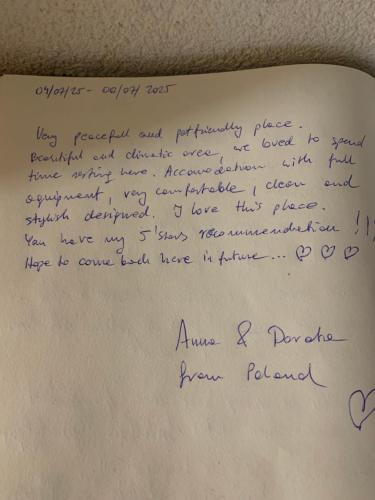 04/07/25 - 00/07/2025
Very peacefull and petfriendly place.
Beautiful and climatic area, we loved to spend
time resting here. Accomodation with full
equipment, very comfortable, clean and
stylish designed. I love this place.
You have my 5'stars recommendation !!!
Hope to come back here in future... ♡ ♡ ♡
Anna & Dorota
from Poland